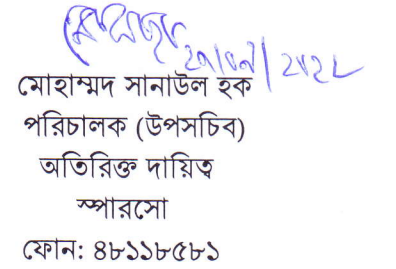 মোহাম্মদ সানাউল হক
পরিচালক (উপসচিব)
অতিরিক্ত দায়িত্ব
স্পারসো
ফোন: ৪৮১১৮৫৮১